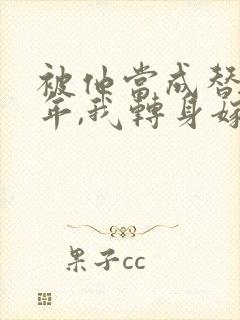 被他当成替
年,我转身嫁
果子cc